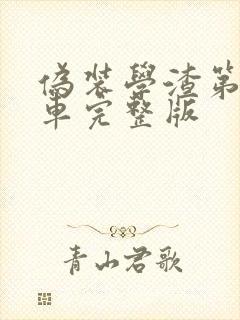 偽装學渣第
車完整版
青山君歌